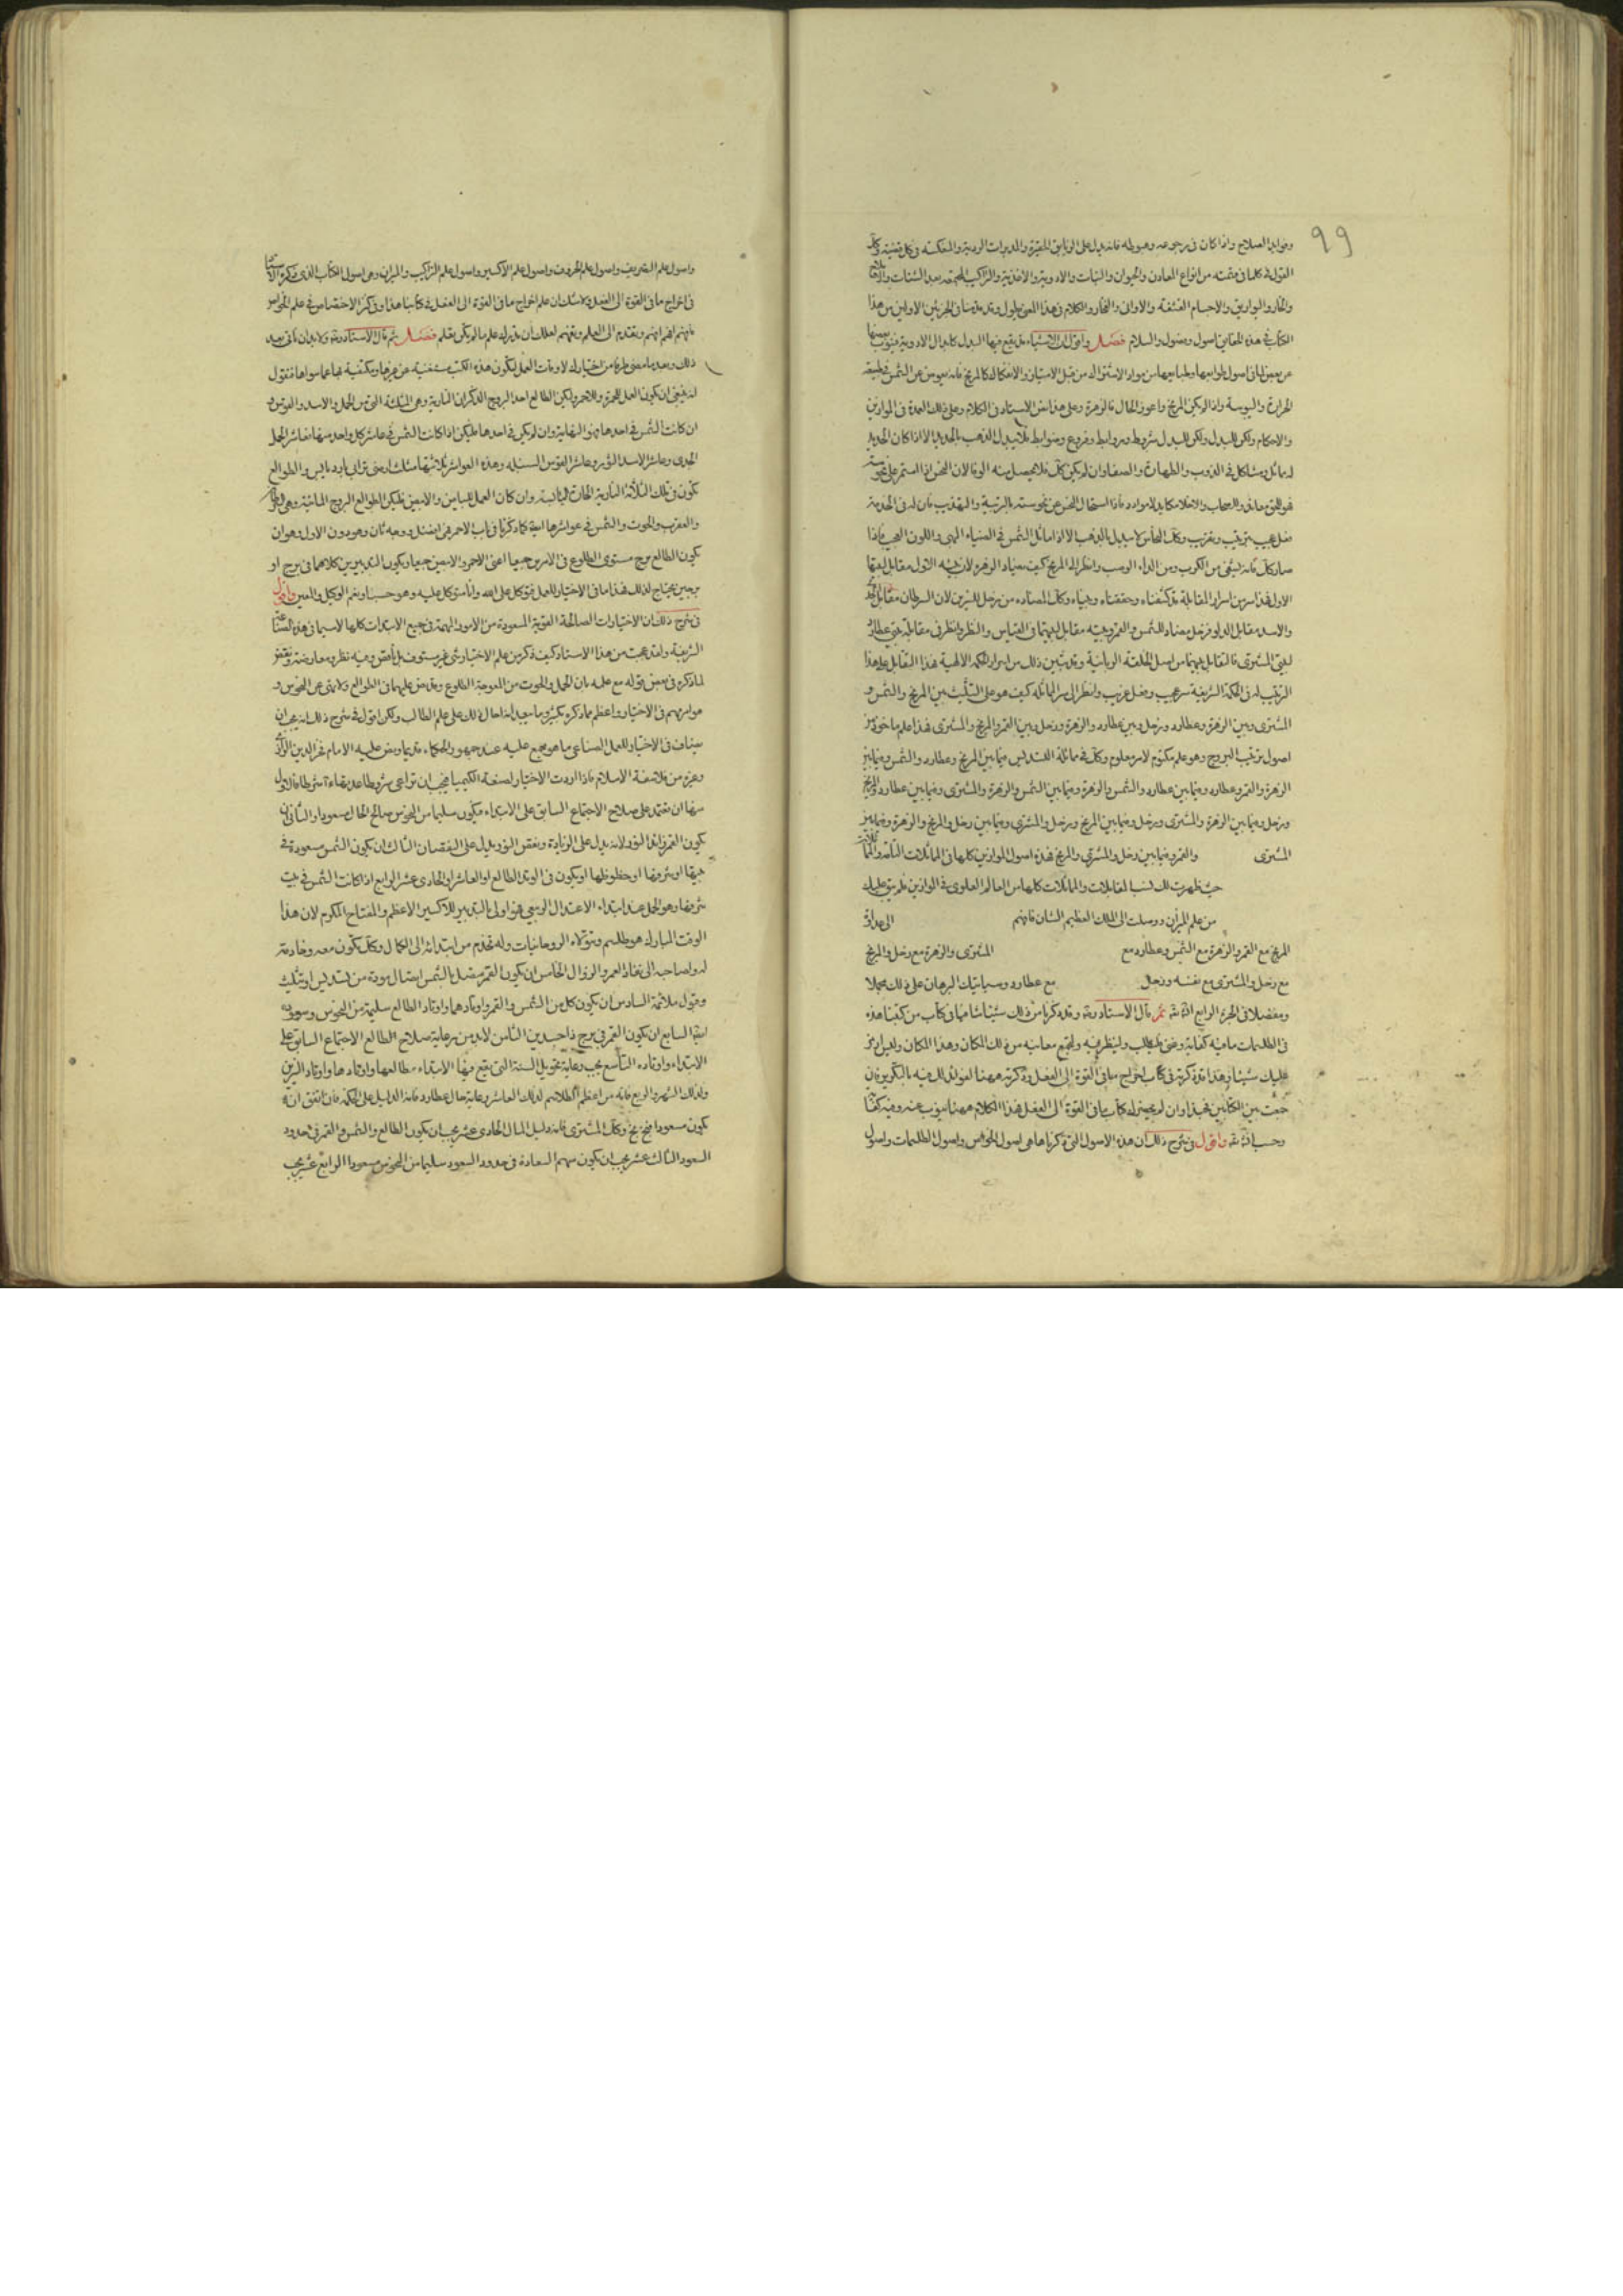 ٩٩
وفوايد الصلاح واذا كان في رجوعه وهبوطه فانه يدل على الوثايق الحقيرة والتدبيرات الردية والمعكسة في كل قضية وكذلك
القول في كلما في قسمته من انواع المعادن والحيوان والنبات والادوية والاغذية والتراكيب المجتمعة بعد الشتات
والاجسام والاواني والفخار والكلام في هذا المعنى يطول وقد قدمنا في الجزئين الاولين من هذا
الكتاب في هذه المعاني اصول وفصول والسلام فصل واقول ان الاشياء قد يقع فيها البدل كابدال الادوية فينوب بعضها
عن بعض
الحرارة واليبوسة واذا لم يكن المريخ واعوز الحال فالزهرة وعلى هذا نص الاستاد في الكلام وعلى ذلك العمدة في الموازين
والاحكام ولكن للبدل شروط وروابط وفروع وضوابط فلا يبدل الذهب بالحديد الا اذا كان الحديد
له مماثل ومشاكل في الذوب والطهارة والصفا وان لم يكن كذلك فلا يحصل منه الوفا لان النحس اذا استمر على نحوسته
فاذا استحال النحس عن نحوسته بالتربية والتهذيب فان له في الخدمة
فعل عجيب وترتيب وتقريب وكذلك النحاس لا يبدل بالذهب الا اذا ماثل الشمس في الضياء البهي واللون العجيب فاذا
صار كذلك فانه وانظر الى المريخ كيف يضاد الزهرة لان بيته الاول مقابل لبيتها
الاول فهذا سر من اسرار المقابلة قد كشفناه وحققناه وكذلك المضادة من زحل للنيرين لان السرطان مقابل الجدي
والاسد مقابل الدلو فزحل مضاد للشمس والقمر وبيته مقابل لبيتهما في القياس والنظر وانظر في مقابلة بيتي عطارد
لبيتي المشتري فالتقابل بينهما من اصل الخلقة الربانية وقد تبين ذلك من اسرار الحكمة الالهية فهذا التقابل على هذا
الترتيب له في الحكمة الشريفة سر عجيب وفعل غريب وانظر الى سر المماثلة كيف هو على التثليث بين المريخ والشمس و
المشتري وبين الزهرة وعطارد وزحل وبين عطارد والزهرة وزحل وبين القمر والمريخ والمشتري فهذا علم ماخوذ من
اصول ترتيب البروج وهو علم مكتوم لامر معلوم وكذلك في مماثلة التسديس فيما بين المريخ وعطارد والشمس وفيما بين
الزهرة والقمر وعطارد وفيما بين عطارد والشمس والزهرة وفيما بين الشمس والزهرة والمشتري وفيما بين عطارد والمريخ
وزحل وفيما بين الزهرة والمشتري وزحل وفيما بين المريخ وزحل والمشتري وفيما بين زحل والمريخ والزهرة وفيما بين
المشتري والقمر وفيما بين زحل والمشتري والمريخ فهذه اصول الموازين كلها في المماثلات
حيث ظهرت لك نسب المقابلات والمماثلات كلها من العالم العلوي في الموازين فلم يبق عليك
من علم الميزان ووصلت الى الملك العظيم الشان فافهم
المريخ مع القمر والزهرة مع الشمس وعطارد مع المشتري والزهرة مع زحل والمريخ
مع زحل والمشتري مع نفسه وزحل مع عطارد وسياتيك البرهان على ذلك مجملا
ومفصلا في الجزء الرابع ان شاء الله ثم قال الاستاد وقد ذكرنا من ذلك شيئا شافيا في كتاب من كتبنا هذه
في الطلسمات ما فيه كفاية وغنى فليطلب ولينظر فيه ولتجمع معانيه من ذلك المكان وهذا المكان وليس نرمز
عليك شيئا وهذا قد ذكرته في كتاب اخراج ما في القوة الى الفعل وذكرته ههنا لفوائد لك فيه بالتكرير فان
جمعت بين الكتابين فجيد وان لم يحضرك كتاب ما في القوة الى الفعل فهذا الكلام ههنا ينوب عنه وفيه كفاية
وحسب ان شاء الله واقول في شرح ذلك ان هذه الاصول التي ذكرناها هي اصول الخواص واصول الطلسمات واصول
واصول علم التصريف واصول علم الحروف واصول علم الاكسير واصول علم التراكيب والميزان وهي اصول الكتاب الذي ذكره الاستاد
في اخراج ما في القوة الى الفعل ولا شك ان علم اخراج ما في القوة الى الفعل في كتابنا هذا وفي كنز الاختصاص في علم الخواص
فافهم افهم افهم وتقدم الى العلم وتفهم لعلك ان تدرك علم ما لم تكن تعلم فصل ثم قال الاستاد ولا بد ان ناتي بعد
ذلك وبعد ما مضى طرفا من اختيارك لاوقات العمل لتكون هذه الكتب مستغنية عن غيرها ومكتفية بها عما سواها فنقول
انه ينبغي ان يكون العمل للحمرة والاحمر وليكن الطالع احد البروج الذكران النارية وهي المثلثة التي من الحمل والاسد والقوس و
ان كانت الشمس في احدها فهو النهاية وان لم يكن في احدها فليكن اذا كانت الشمس في عاشر كل واحد منها فعاشر الحمل
الجدي وعاشر الاسد الثور وعاشر القوس السنبلة وهذه العواشر ثلاثتها مثلث ارضي ترابي بارد يابس والطوالع
تكون في تلك الثلاثة النارية الحارة اليابسة وان كان العمل للبياض والابيض فليكن الطوالع البروج المائية وهي السرطان
والعقرب والحوت والشمس في عواشرها ايضا كما ذكرنا في باب الاحمر فهي افضل ووجه ثان وهو دون الاول وهو ان
يكون الطالع برج مستوي الطلوع في الامرين جميعا اعني الاحمر والابيض جميعا ويكون النيرين كلاهما في برج او
برجين فهذا ما في الاختيار للعمل فتوكل على الله وانا متوكل عليه وهو حسبنا ونعم الوكيل والمعين واقول
في شرح ذلك ان الاختيارات الصالحة القوية المسعودة من الامور المهمة في جميع الابتدات كلها لاسيما في هذه الصناعة
الشريفة ولقد عجبت من هذا الاستاد كيف ذكر من علم الاختيار شيء غير مستوف بل ناقص وفيه نظر ومعارضة ونقض
لما ذكره في بعض قوله مع علمه بان الحمل والحوت من المعوجة الطلوع وقد نص عليهما في الطوالع ولا نهى عن النحوس و
هو امر مهم في الاختيار واعظم مما ذكره بكثير وما نعلم لماذا احال ذلك على علم الطالب ولكن اقول في شرح ذلك انه يجب ان
يضاف في الاختيار للعمل الصناعي ما هو مجمع عليه عند جمهور الحكماء قديما ونص عليه الامام فخر الدين الرازي
وغيره من فلاسفة الاسلام فاذا اردت الاختيار لصنعة الكيميا فيجب ان تراعي شروطا الاول
منها ان تعتمد على صلاح الاجتماع السابق على الابتداء فيكون سليما من النحوس صالح الحال مسعودا والثاني ان
يكون القمر زائد النور لانه يدل على الزيادة ونقص النور دليل على النقصان الثالث ان يكون الشمس مسعودة في
بيتها او شرفها او حظوظها او يكون في الوتد الطالع او العاشر او الحادي عشر الرابع اذا كانت الشمس في بيت
شرفها وهو الحمل عند ابتداء الاعتدال الربيعي فهو اولى بالتدبير للاكسير الاعظم والمفتاح المكرم لان هذا
الوقت المبارك هو طلسم وتتولاه الروحانيات وله تخدم من ابتدائه الى الكمال وكذلك تكون معه وخادمة
له ولصاحبه الى نفاذ العمر والزوال الخامس ان يكون القمر متصل بالشمس اتصال مودة من تسديس او تثليث
وقبول ملائمة السادس ان يكون كل من الشمس والقمر واوتادهما واوتاد الطالع سليمة من النحوس ومسعودة
ايضا السابع ان يكون القمر في برج ذا جسدين الثامن لا بد من مراعاة صلاح الطالع الاجتماع السابق على
الابتداء واوتاده التاسع يجب رعاية تحويل السنة التي يقع فيها الابتداء وطالعها واوتادها واوتاد النيرين
وكذلك الشهر والربع فانه من اعظم الطلاسم لذلك العاشر رعاية حال عطارد فانه الدليل على الحكمة فان اتفق انه
يكون مسعودا فبخ بخ وكذلك المشتري فانه دليل المال الحادي عشر يجب ان يكون الطالع والشمس والقمر في حدود
السعود الثالث عشر يجب ان يكون سهم السعادة في حدود السعود سليما من النحوس مسعودا الرابع عشر يجب